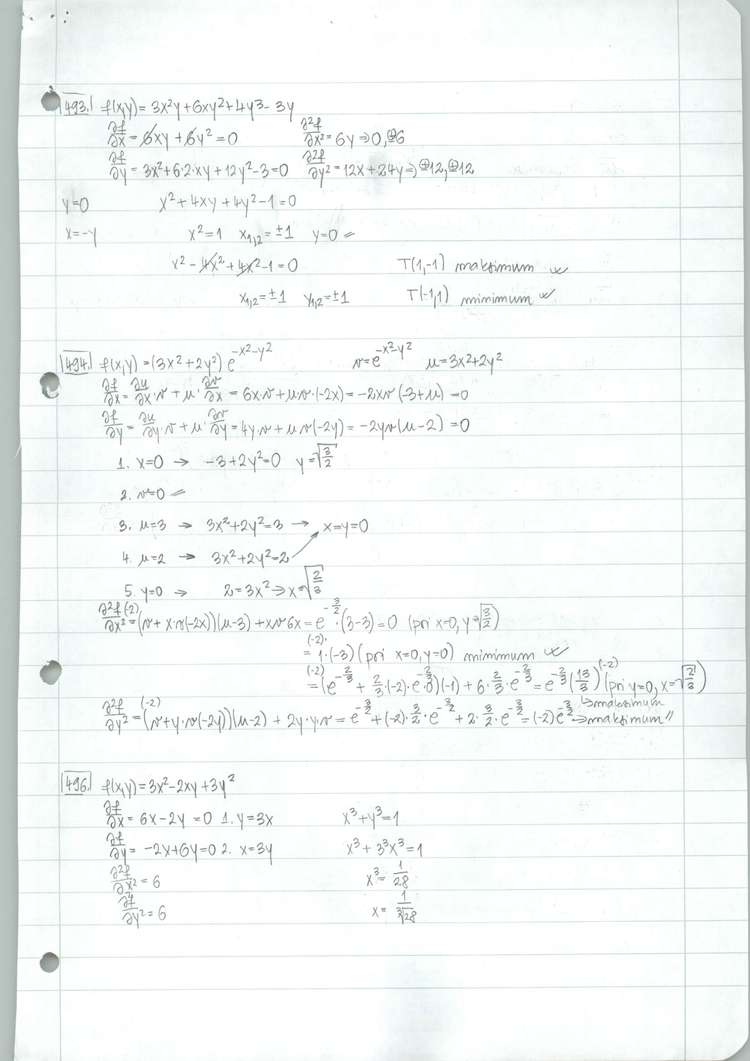 493. f(x,y) = 3x²y + 6xy² + 4y³ - 3y
∂f/∂x = 6xy + 6y² = 0 ∂²f/∂x² = 6y ⇒ 0, ⊕6
∂f/∂y = 3x² + 6·2·xy + 12y² - 3 = 0 ∂²f/∂y² = 12x + 24y ⇒ ⊕12, ⊕12
y=0 x² + 4xy + 4y² - 1 = 0
x=-y x² = 1 x₁,₂ = ±1 y=0
x² - 4x² + 4x² - 1 = 0 T(1,-1) maksimum
x₁,₂ = ±1 y₁,₂ = ±1 T(-1,1) minimum
494. f(x,y) = (3x² + 2y²) e^(-x²-y²) v = e^(-x²-y²) u = 3x² + 2y²
∂f/∂x = ∂u/∂x · v + u · ∂v/∂x = 6x·v + uv·(-2x) = -2xv(-3+u) = 0
∂f/∂y = ∂u/∂y · v + u · ∂v/∂y = 4y·v + uv(-2y) = -2yv(u-2) = 0
1. x=0 → -3+2y²=0 y=√(3/2)
2. v=0
3. u=3 → 3x²+2y²=3 → x=y=0
4. u=2 → 3x²+2y²=2
5. y=0 → 2=3x² ⇒ x=√(2/3)
∂²f/∂x² = (-2) (v + x·v(-2x))(u-3) + xv6x = e^(-3/2) · (3-3) = 0 (pri x=0, y=√(3/2))
= (-2)· 1·(-3) (pri x=0, y=0) minimum
= (-2) (e^(-2/3) + 2/3·(-2)·e^(-2/3))(-1) + 6·2/3·e^(-2/3) = e^(-2/3) (13/3) (-2) (pri y=0, x=√(2/3))
↳ maksimum
∂²f/∂y² = (-2) (v+y·v(-2y))(u-2) + 2y·y·v = e^(-3/2) + (-2)·3/2·e^(-3/2) + 2·3/2·e^(-3/2) = (-2) e^(-3/2) → maksimum
496. f(x,y) = 3x² - 2xy + 3y²
∂f/∂x = 6x - 2y = 0 1. y=3x x³+y³=1
∂f/∂y = -2x+6y=0 2. x=3y x³ + 3³x³ = 1
∂²f/∂x² = 6 x³ = 1/28
∂f/∂y² = 6 x = 1/∛28